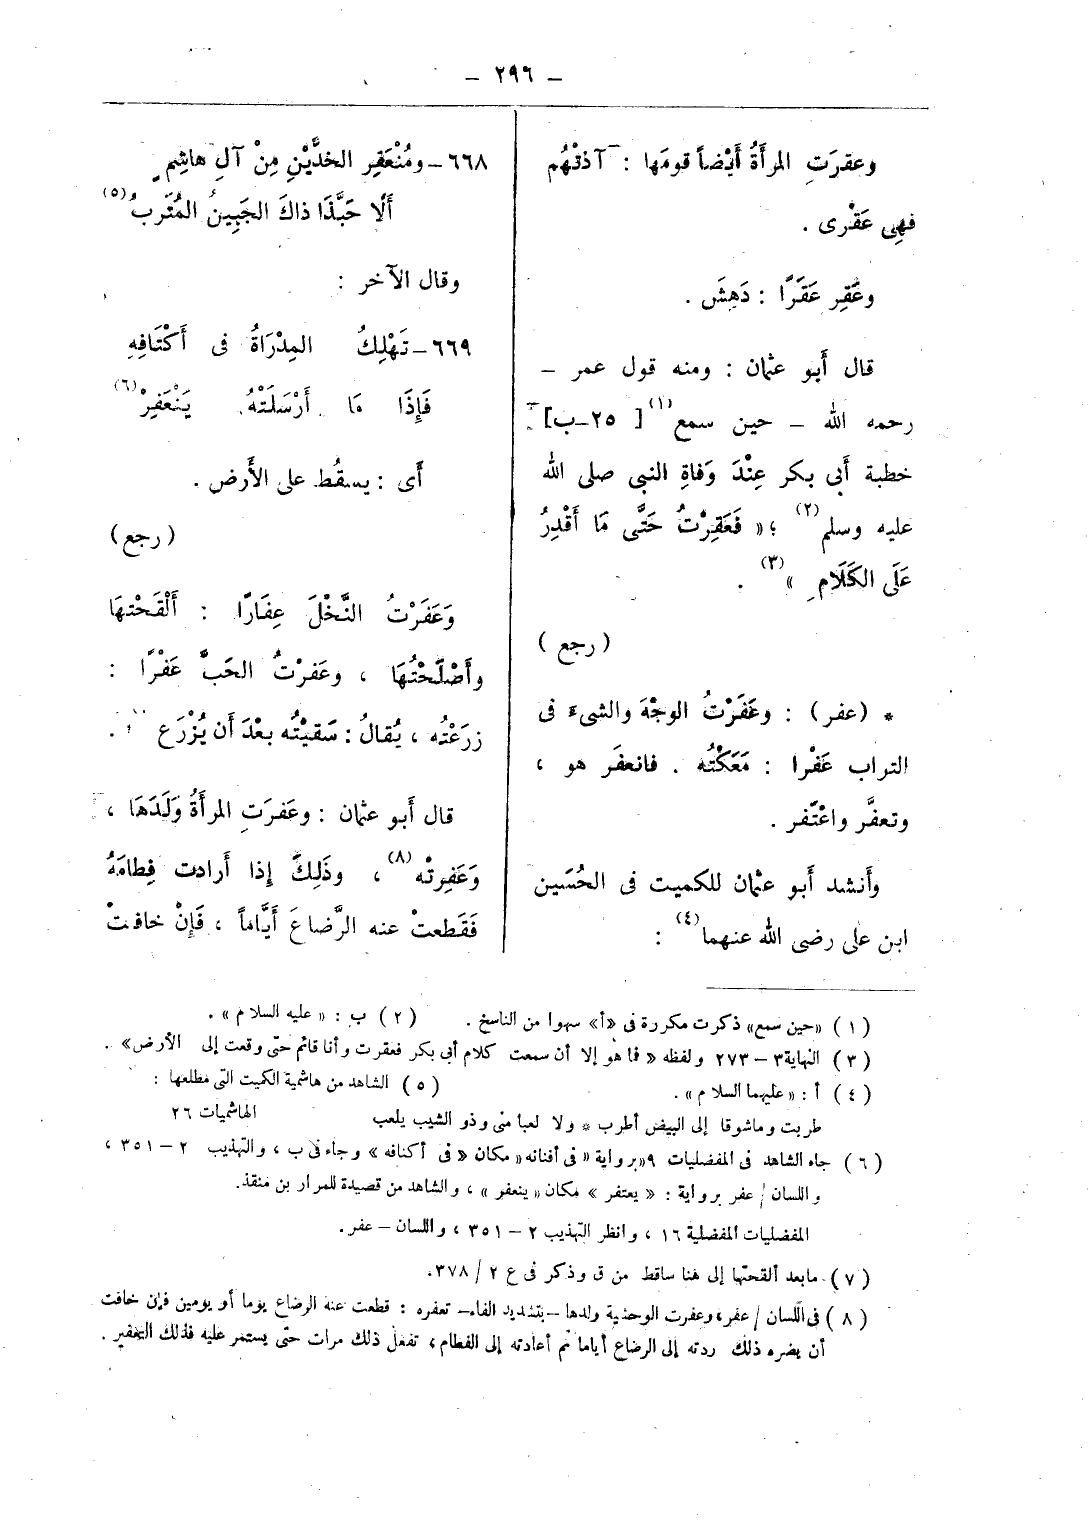 – ٢٩٦ –
وعقرَتِ المرأَةُ أَيْضاً قومَها : آذتْهُم
فهِى عَقْرى .
وعَقِر عَقَرًا : دَهِشَ .
قال أَبو عثمان : ومنه قول عمر –
رحمه الله – حين سمع (١) [ ٢٥–ب ]
خطبة أَبى بكر عِنْدَ وَفاةِ النبى صلى الله
عليه وسلم (٢) ؛ « فَعَقِرْتُ حَتَّى مَا أَقْدِرُ
عَلَى الكَلَامِ » (٣) .
( رجع )
* (عفر) : وعَفَرْتُ الوجْهَ والشىءَ فى
التراب عَفْرا : مَعَكْتُه . فانعفَر هو ،
وتعفَّر واعْتَفر .
وأَنشد أَبو عثمان للكميت فى الحُسَين
ابن على رضى الله عنهما (٤) :
٦٦٨ – ومُنْعَفِرِ الخدَّيْنِ مِنْ آلِ هاشِمٍ
أَلَا حَبَّذَا ذاكَ الجَبِينُ المُتَرَّبُ (٥)
وقال الآخر :
٦٦٩ – تَهْلِكُ المِدْرَاةُ فى أَكْتَافِهِ
فَإِذَا مَا أَرْسَلَتْهُ يَنْعَفِرْ (٦)
أَى : يسقُط على الأَرض .
( رجع )
وَعَفَرْتُ النَّخْلَ عِفَارًا : أَلْقَحْتهَا
وأَصْلَحْتُهَا ، وعَفرْتُ الحَبَّ عَفْرًا :
زرَعْتُه ، يُقالُ : سَقيْتُه بعْدَ أَن يُزْرَع .
قال أَبو عثمان : وعَفرَتِ المرأَةُ وَلَدَهَا ،
وَعَفِرتْه (٨) ، وذَلِكَ إِذا أَرادت فِطامَهُ
فَقَطعتْ عنه الرَّضاعَ أَيَّاماً ، فَإِنْ خافتْ
(١) «حين سمع» ذكرت مكررة فى «أ» سهوا من الناسخ . (٢) ب : « عليه السلام » .
(٣) النهاية ٣ – ٢٧٣ ولفظه « فما هو إلا أن سمعت كلام أبى بكر فعقرت وأنا قائم حتى وقعت إلى الأرض» .
(٤) أ : « عليهما السلام » . (٥) الشاهد من هاشمية الكميت التى مطلعها :
طربت وما شوقا إلى البيض أطرب * ولا لعبا منى وذو الشيب يلعب الهاشميات ٢٦
(٦) جاء الشاهد فى المفضليات ٩ «برواية « فى أفنانه» مكان « فى أكنافه » وجاء فى ب ، والتهذيب ٢ – ٣٥١ ،
واللسان / عفر برواية : « يعتفر » مكان « ينعفر » ، والشاهد من قصيدة للمرار بن منقذ.
المفضليات المفضلية ١٦ ، وانظر التهذيب ٢ – ٣٥١ ، واللسان – عفر.
(٧) مابعد ألقحتها إلى هنا ساقط من ق وذكر فى ع ٢ / ٣٧٨.
(٨) فى اللسان / عفر، وعفرت الوحشية ولدها – بتشديد الفاء – تعفره : قطعت عنه الرضاع يوما أو يومين فإن خافت
أن يضره ذلك ردته إلى الرضاع أياما ثم أعادته إلى الفطام، تفعل ذلك مرات حتى يستمر عليه فذلك التعفير .